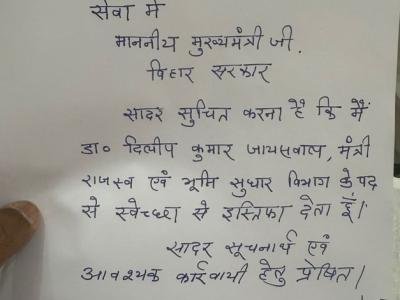 सेवा में
माननीय मुख्यमंत्री जी.
बिहार सरकार
सादर सुचित करना है कि मैं
डा० दिलीप कुमार जायसवाल, मंत्री
राजस्व एवं भूमि सुधार विभाग के पद
से स्वेच्छा से इस्तिफा देता हूँ।
सादर सूचनार्थ एवं
आवश्यक कार्रवायी हेतु प्रेषित।